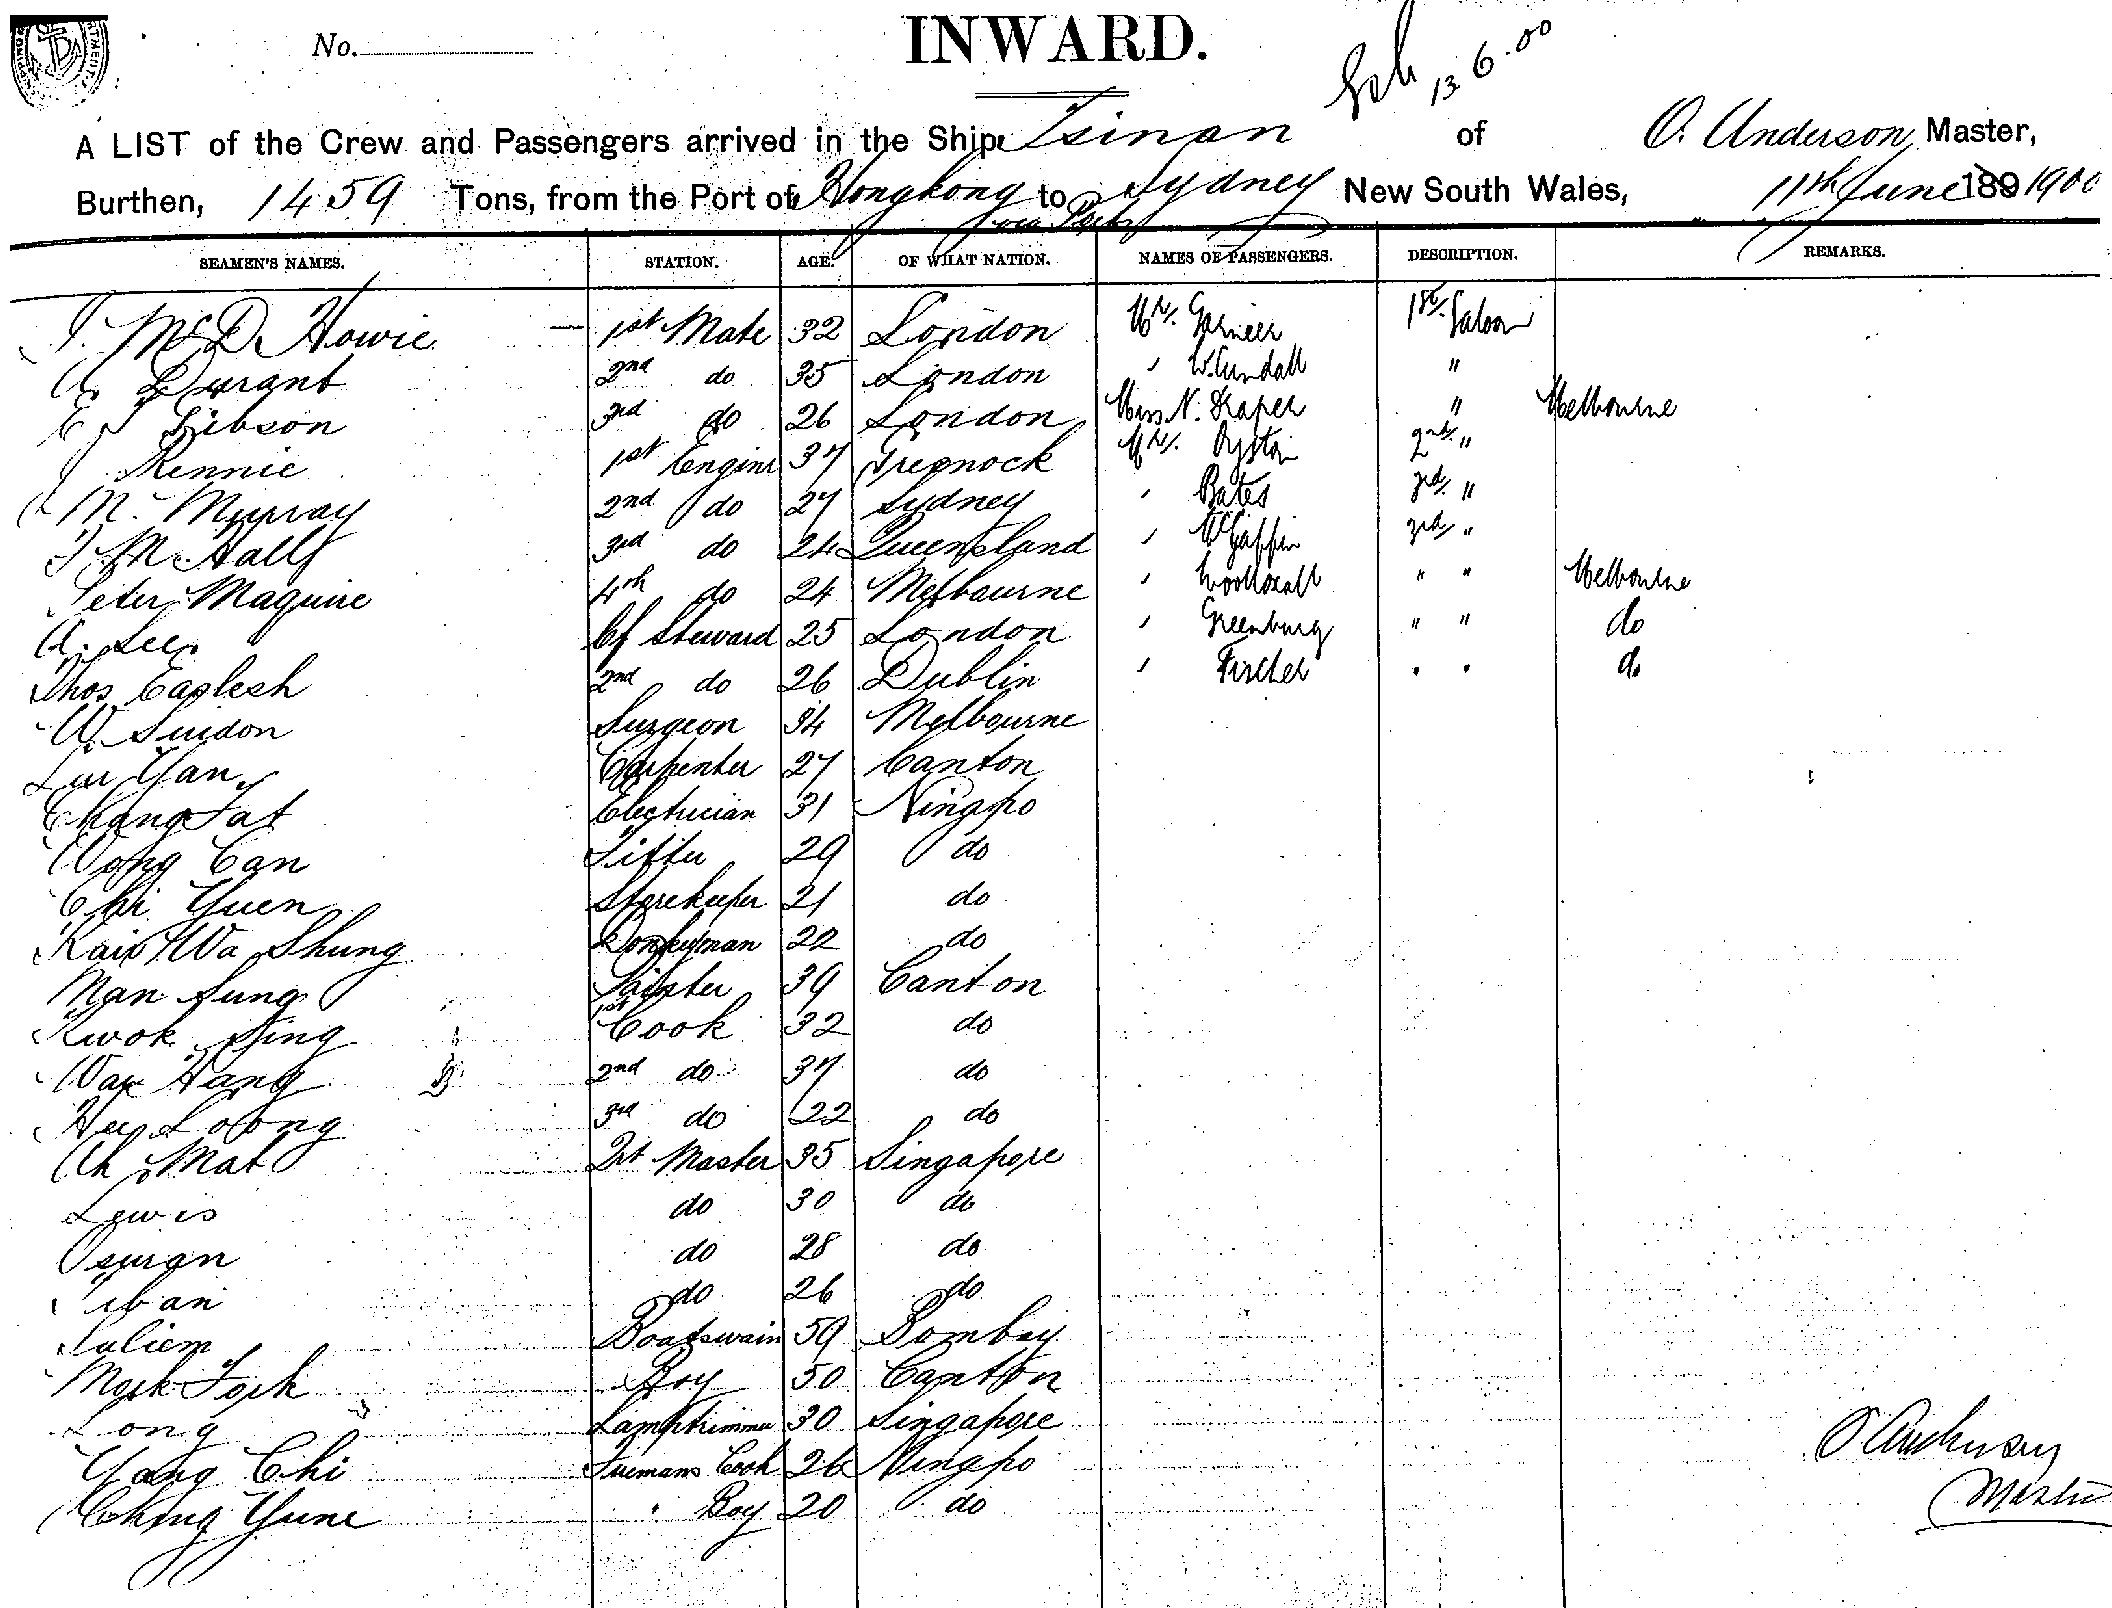 No.
INWARD.
13 6.00
A LIST of the Crew and Passengers arrived in the Ship Tsinan of O. Anderson Master,
Burthen, 1459 Tons, from the Port of Hongkong to Sydney New South Wales, 11th June 189 1900
via Ports
SEAMEN'S NAMES. STATION. AGE. OF WHAT NATION. NAMES OF PASSENGERS. DESCRIPTION. REMARKS.
McD Howie 1st Mate 32 London Mrs. 1st. Saloon
Durant 2nd do 35 London " W. Cundall "
Gibson 3rd do 26 London Miss N. Draper " Melbourne
J Rennie 1st Enginr 37 Greenock Mrs. 2nd. "
M. Murray 2nd do 27 Sydney " Bates 3rd. "
J M Hall 3rd do 24 Queensland " 3rd "
Peter Maguire 4th do 24 Melbourne " " " Melbourne
A. Lee Cf Steward 25 London " Greenburg " " do
Thos Eaglesh 2nd do 26 Dublin " Fischer " " do
W. Surgeon 34 Melbourne
Yan Carpenter 27 Canton
Chang Fat Electrician 31 Ningpo
Wong Can Fitter 29 do
Chi Yuen Storekeeper 21 do
Wa Shung Donkeyman 22 do
Man Sung Painter 39 Canton
Kwok Sing 1st Cook 32 do
Hang 2nd do 37 do
Loong 3rd do 22 do
Ah Mat Qrt Master 35 Singapore
Lewis do 30 do
Osman do 28 do
do 26 do
Saliem Boatswain 59 Bombay
Boy 50 Canton
Long Lamptrimmer 30 Singapore
Yang Chi Firemans Cook 26 Ningpo
Ching Yune " Boy 20 do
O Anderson
Master